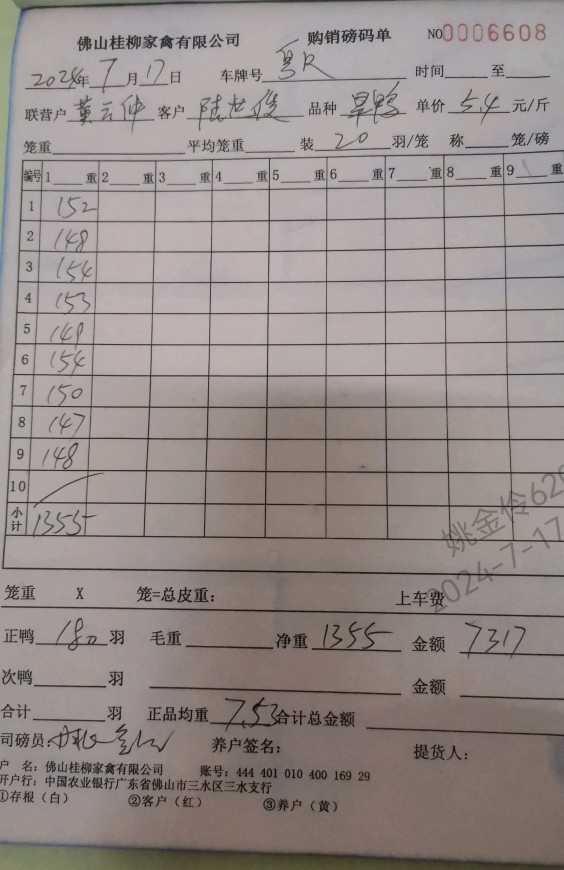 佛山桂柳家禽有限公司 购销磅码单 NO0006608
2024年7月17日 车牌号 粤R 时间 至
联营户 黄云仲 客户 品种 旱鸭 单价 5.4 元/斤
笼重 平均笼重 装 20 羽/笼 称 笼/磅
编号 1 重 2 重 3 重 4 重 5 重 6 重 7 重 8 重 9 重
1 152
2 148
3 154
4 153
5 149
6 154
7 150
8 147
9 148
10
小计 1355
姚金伶
2024-7-17
笼重 X 笼=总皮重: 上车费
正鸭 180 羽 毛重 净重 1355 金额 7317
次鸭 羽 金额
合计 羽 正品均重 7.53 合计总金额
司磅员: 养户签名: 提货人:
户 名: 佛山桂柳家禽有限公司 账号: 444 401 010 400 169 29
开户行: 中国农业银行广东省佛山市三水区三水支行
①存根（白） ②客户（红） ③养户（黄）